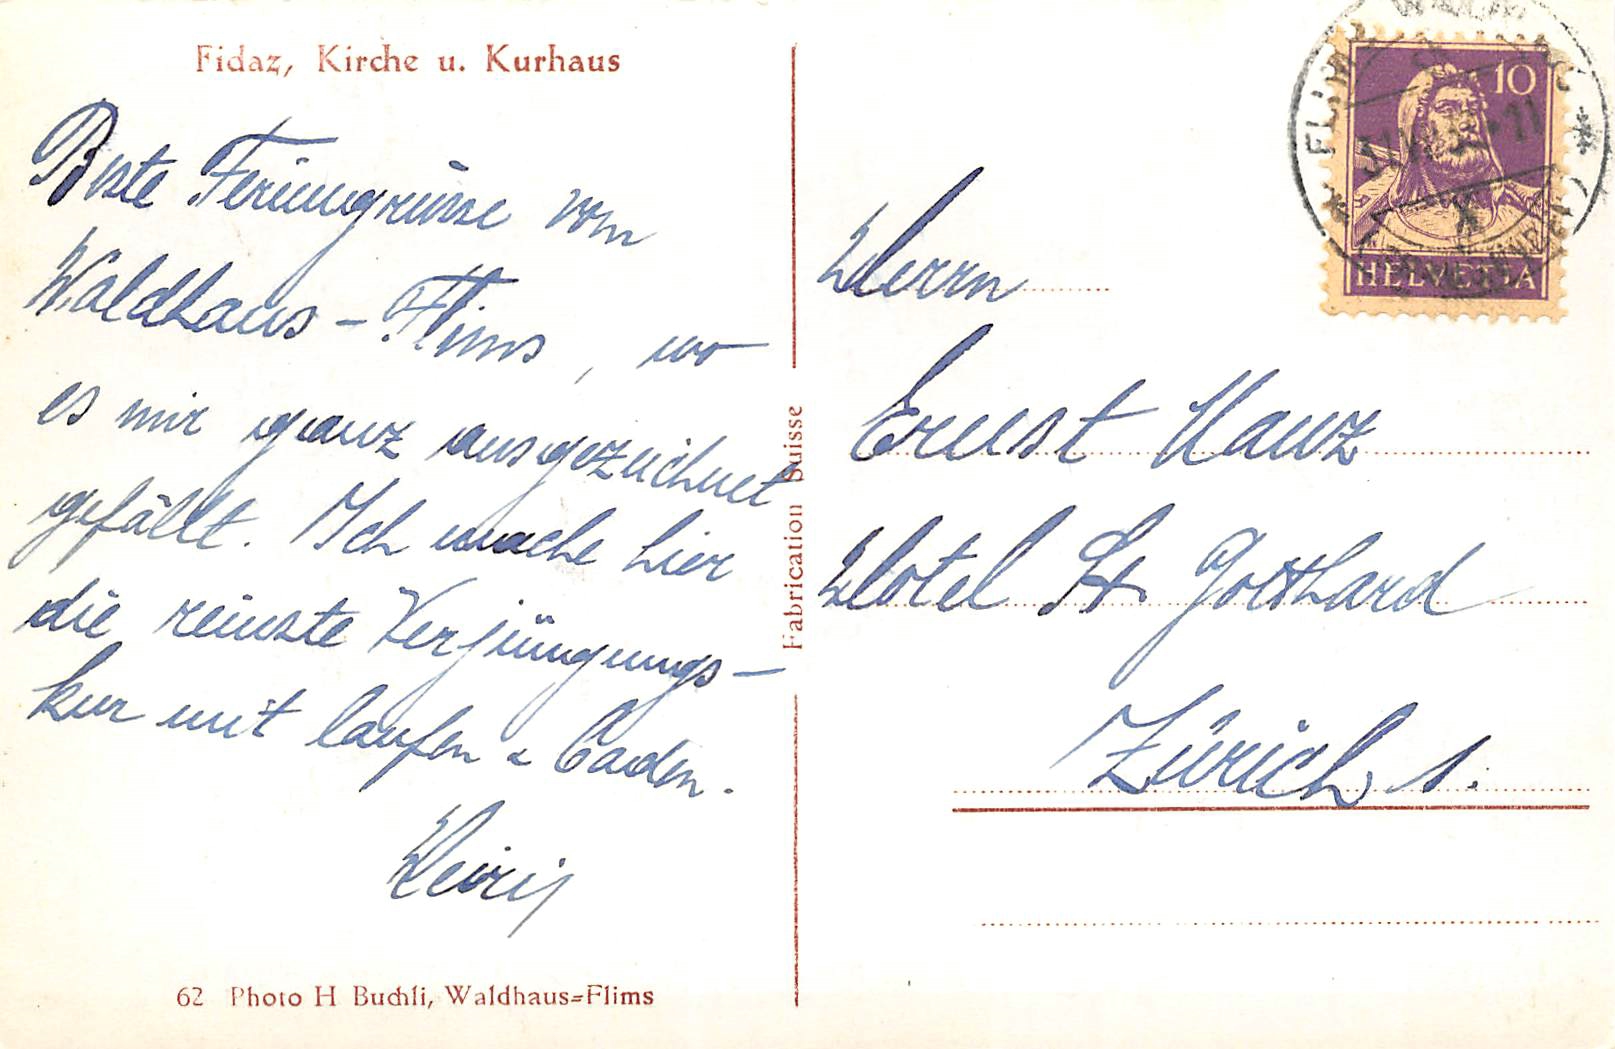 Fidaz, Kirche u. Kurhaus
Beste Feriengrüsse vom
Waldhaus - Flims, wo
es mir ganz ausgezeichnet
gefällt. Ich mache hier
die reinste Verjüngungs-
kur mit laufen & baden.
Heiri
62 Photo H Buchli, Waldhaus=Flims
Fabrication Suisse
10
HELVETIA
Herrn
Ernst Hanz
Hotel St Gotthard
Zürich 1.